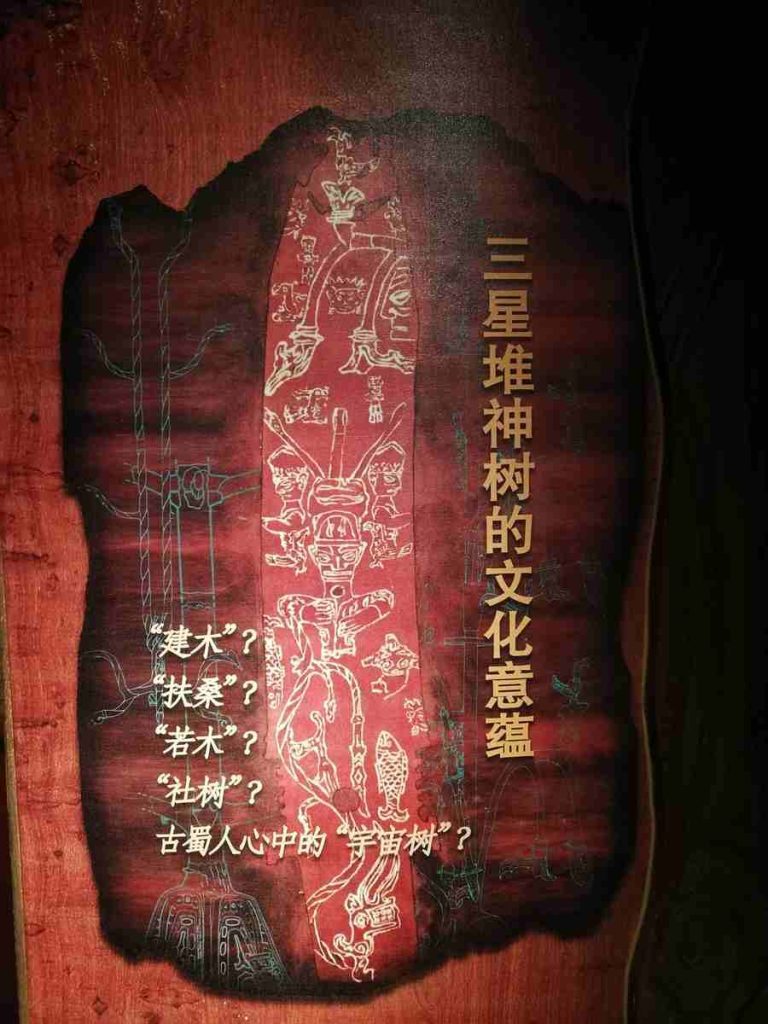 三星堆神树的文化意蕴
“建木”？
“扶桑”？
“若木”？
“社树”？
古蜀人心中的“宇宙树”？